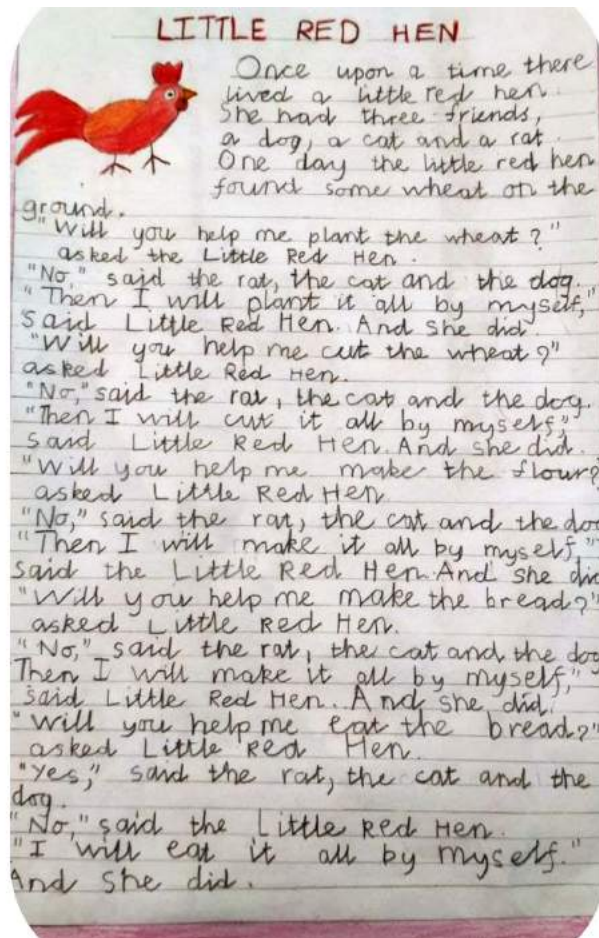 LITTLE RED HEN
Once upon a time there
lived a little red hen.
She had three friends,
a dog, a cat and a rat.
One day the little red hen
found some wheat on the
ground.
"Will you help me plant the wheat?"
asked the Little Red Hen.
"No," said the rat, the cat and the dog.
"Then I will plant it all by myself,"
said Little Red Hen. And she did
"Will you help me cut the wheat?"
asked Little Red Hen.
"No," said the rat, the cat and the dog.
"Then I will cut it all by myself,"
said Little Red Hen. And she did.
"Will you help me make the flour?
asked Little Red Hen
"No," said the rat, the cat and the dog
"Then I will make it all by myself,"
said the Little Red Hen. And she did
"Will you help me make the bread?"
asked Little Red Hen.
"No," said the rat, the cat and the dog
Then I will make it all by myself,"
said Little Red Hen. And she did.
"Will you help me eat the bread?"
asked Little Red Hen.
"Yes," said the rat, the cat and the
dog.
"No," said the Little Red Hen.
"I will eat it all by myself."
And she did.